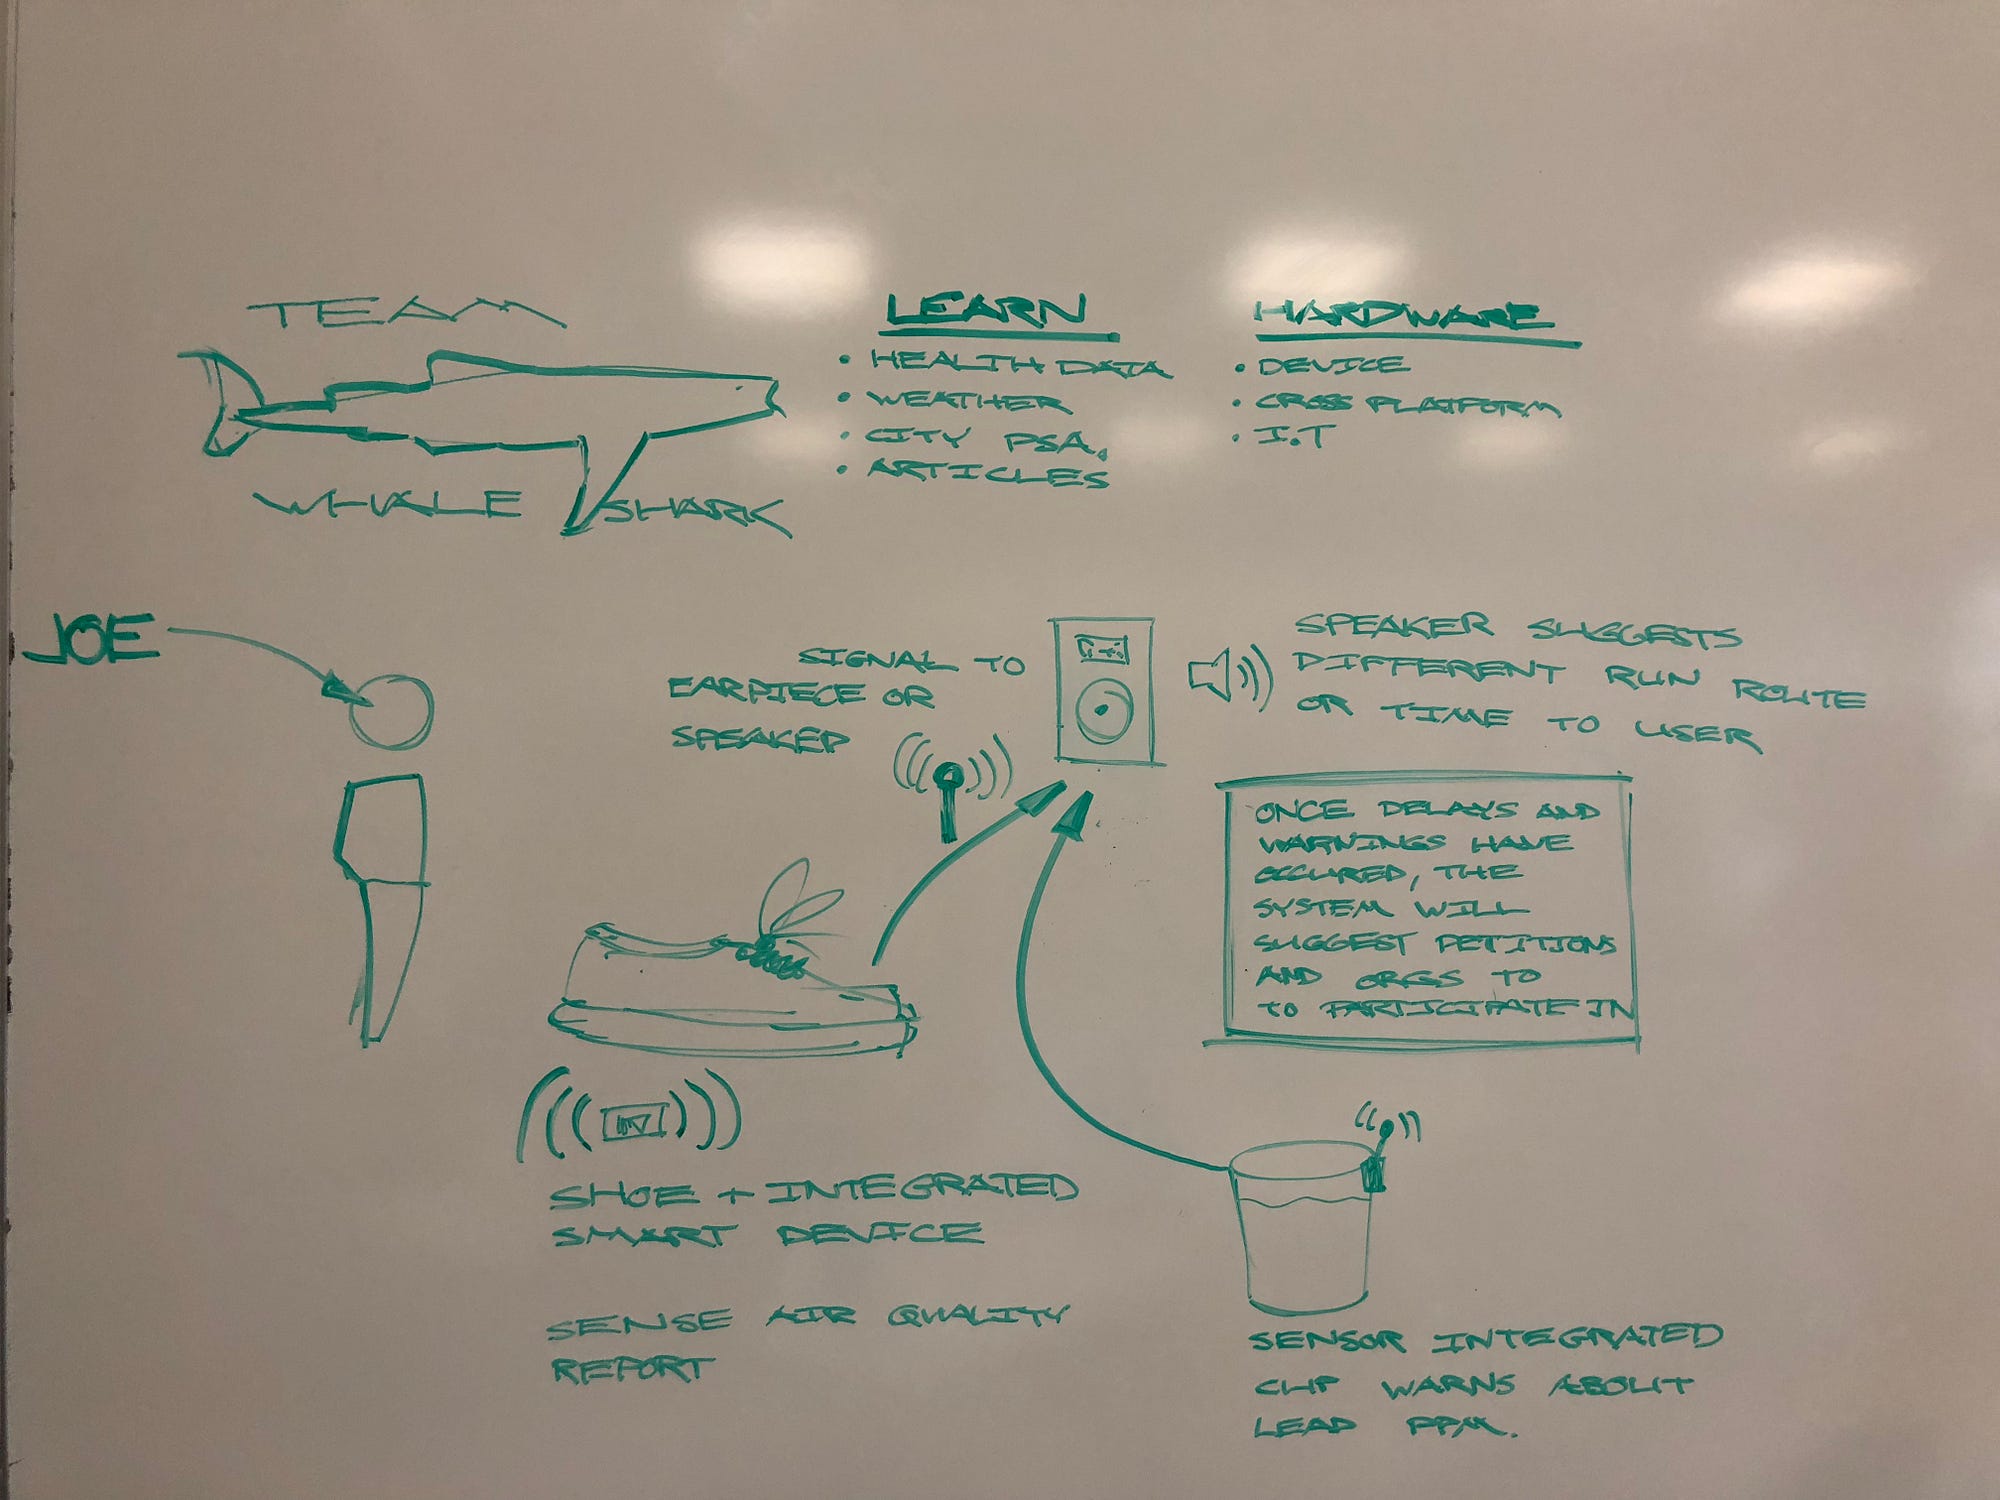 TEAM
WHALE SHARK
LEARN
• HEALTH DATA
• WEATHER
• CITY PSA,
• ARTICLES
HARDWARE
• DEVICE
• CROSS PLATFORM
• I.T
JOE
SIGNAL TO
EARPIECE OR
SPEAKER
SPEAKER SUGGESTS
DIFFERENT RUN ROUTE
OR TIME TO USER
ONCE DELAYS AND
WARNINGS HAVE
OCCURED, THE
SYSTEM WILL
SUGGEST PETITIONS
AND ORGS TO
TO PARTICIPATE IN
SHOE + INTEGRATED
SMART DEVICE
SENSE AIR QUALITY
REPORT
SENSOR INTEGRATED
CLIP WARNS ABOUT
LEAD PPM.